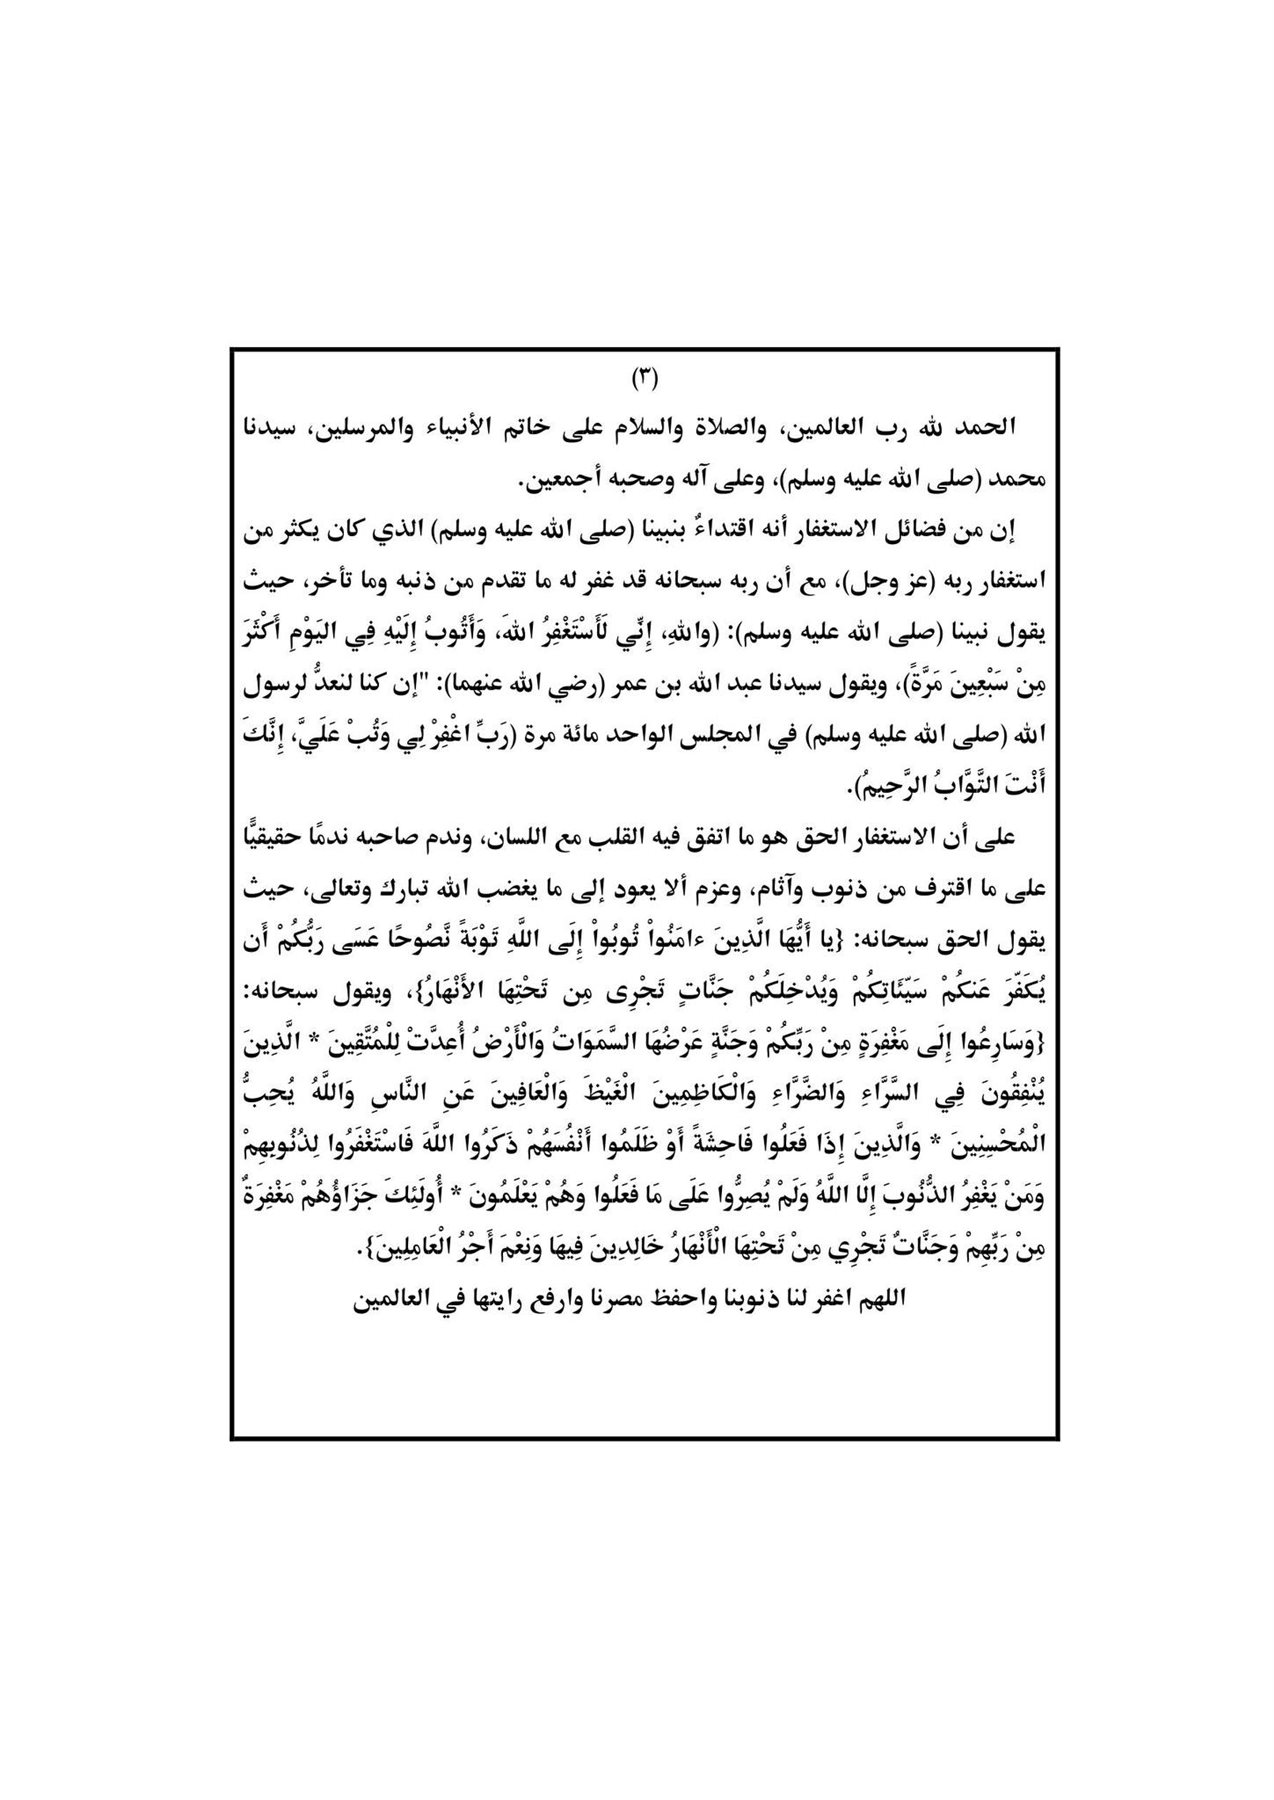 (٣)
الحمد لله رب العالمين، والصلاة والسلام على خاتم الأنبياء والمرسلين، سيدنا
محمد (صلى الله عليه وسلم)، وعلى آله وصحبه أجمعين.
إن من فضائل الاستغفار أنه اقتداءٌ بنبينا (صلى الله عليه وسلم) الذي كان يكثر من
استغفار ربه (عز وجل)، مع أن ربه سبحانه قد غفر له ما تقدم من ذنبه وما تأخر، حيث
يقول نبينا (صلى الله عليه وسلم): (واللهِ، إِنِّي لَأَسْتَغْفِرُ اللهَ، وَأَتُوبُ إِلَيْهِ فِي اليَوْمِ أَكْثَرَ
مِنْ سَبْعِينَ مَرَّةً)، ويقول سيدنا عبد الله بن عمر (رضي الله عنهما): "إن كنا لنعدُّ لرسول
الله (صلى الله عليه وسلم) في المجلس الواحد مائة مرة (رَبِّ اغْفِرْ لِي وَتُبْ عَلَيَّ، إِنَّكَ
أَنْتَ التَّوَّابُ الرَّحِيمُ).
على أن الاستغفار الحق هو ما اتفق فيه القلب مع اللسان، وندم صاحبه ندمًا حقيقيًّا
على ما اقترف من ذنوب وآثام، وعزم ألا يعود إلى ما يغضب الله تبارك وتعالى، حيث
يقول الحق سبحانه: {يا أَيُّهَا الَّذِينَ ءامَنُواْ تُوبُواْ إِلَى اللَّهِ تَوْبَةً نَّصُوحًا عَسَى رَبُّكُمْ أَن
يُكَفِّرَ عَنكُمْ سَيِّئَاتِكُمْ وَيُدْخِلَكُمْ جَنَّاتٍ تَجْرِى مِن تَحْتِهَا الأَنْهَارُ}، ويقول سبحانه:
{وَسَارِعُوا إِلَى مَغْفِرَةٍ مِنْ رَبِّكُمْ وَجَنَّةٍ عَرْضُهَا السَّمَوَاتُ وَالْأَرْضُ أُعِدَّتْ لِلْمُتَّقِينَ * الَّذِينَ
يُنْفِقُونَ فِي السَّرَّاءِ وَالضَّرَّاءِ وَالْكَاظِمِينَ الْغَيْظَ وَالْعَافِينَ عَنِ النَّاسِ وَاللَّهُ يُحِبُّ
الْمُحْسِنِينَ * وَالَّذِينَ إِذَا فَعَلُوا فَاحِشَةً أَوْ ظَلَمُوا أَنْفُسَهُمْ ذَكَرُوا اللَّهَ فَاسْتَغْفَرُوا لِذُنُوبِهِمْ
وَمَنْ يَغْفِرُ الذُّنُوبَ إِلَّا اللَّهُ وَلَمْ يُصِرُّوا عَلَى مَا فَعَلُوا وَهُمْ يَعْلَمُونَ * أُولَئِكَ جَزَاؤُهُمْ مَغْفِرَةٌ
مِنْ رَبِّهِمْ وَجَنَّاتٌ تَجْرِي مِنْ تَحْتِهَا الْأَنْهَارُ خَالِدِينَ فِيهَا وَنِعْمَ أَجْرُ الْعَامِلِينَ}.
اللهم اغفر لنا ذنوبنا واحفظ مصرنا وارفع رايتها في العالمين